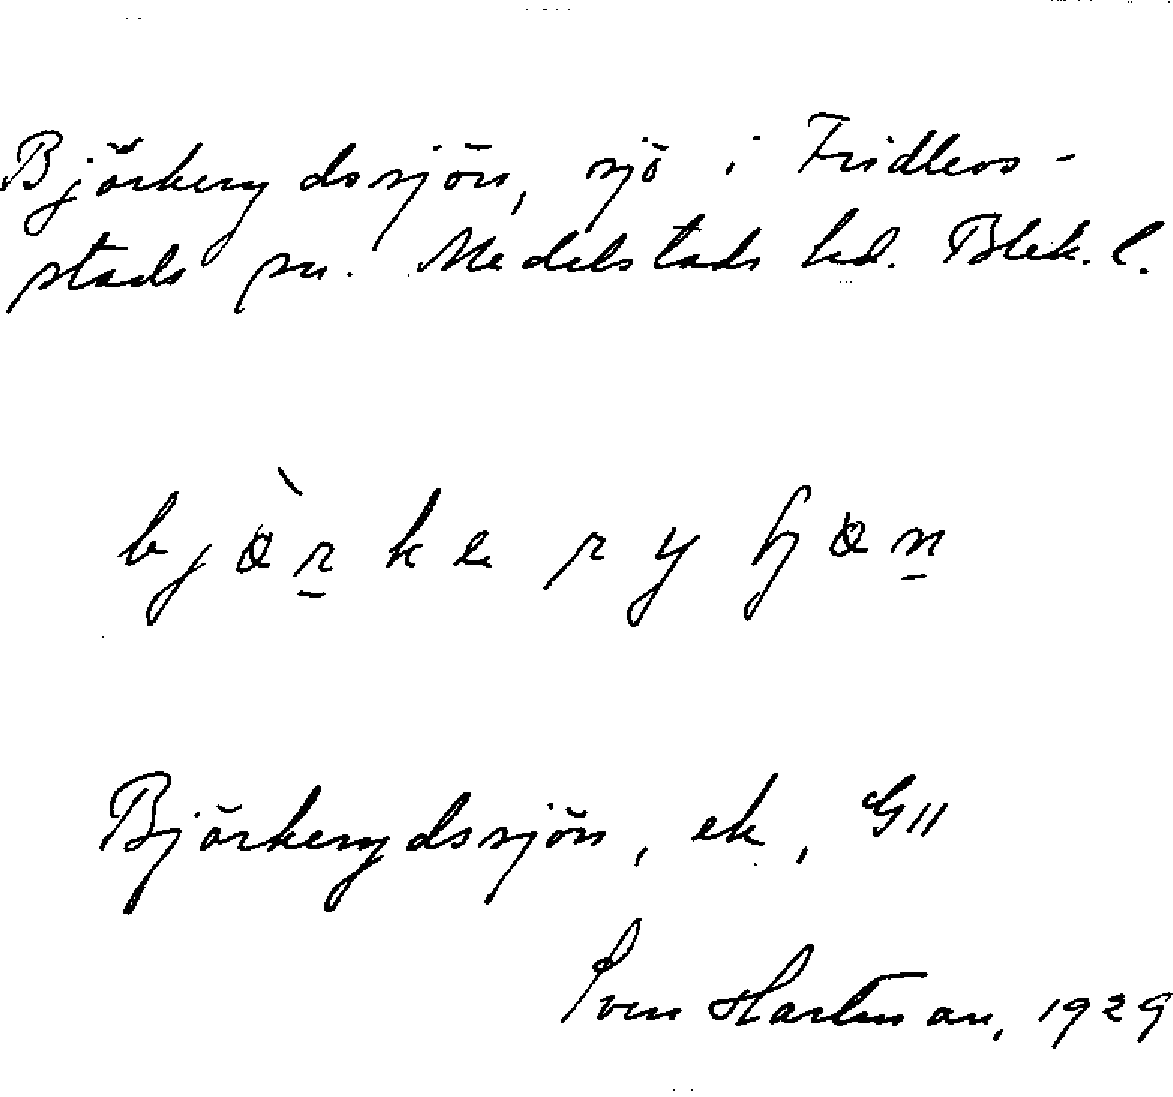 Björkerydssjön, sjö i Fridlevs-
stads sn. Medelstads hd. Blek. l.
bjö̀r̠keryʃön̠
Björkerydssjön, ek, G11
Sven Hartman, 1929